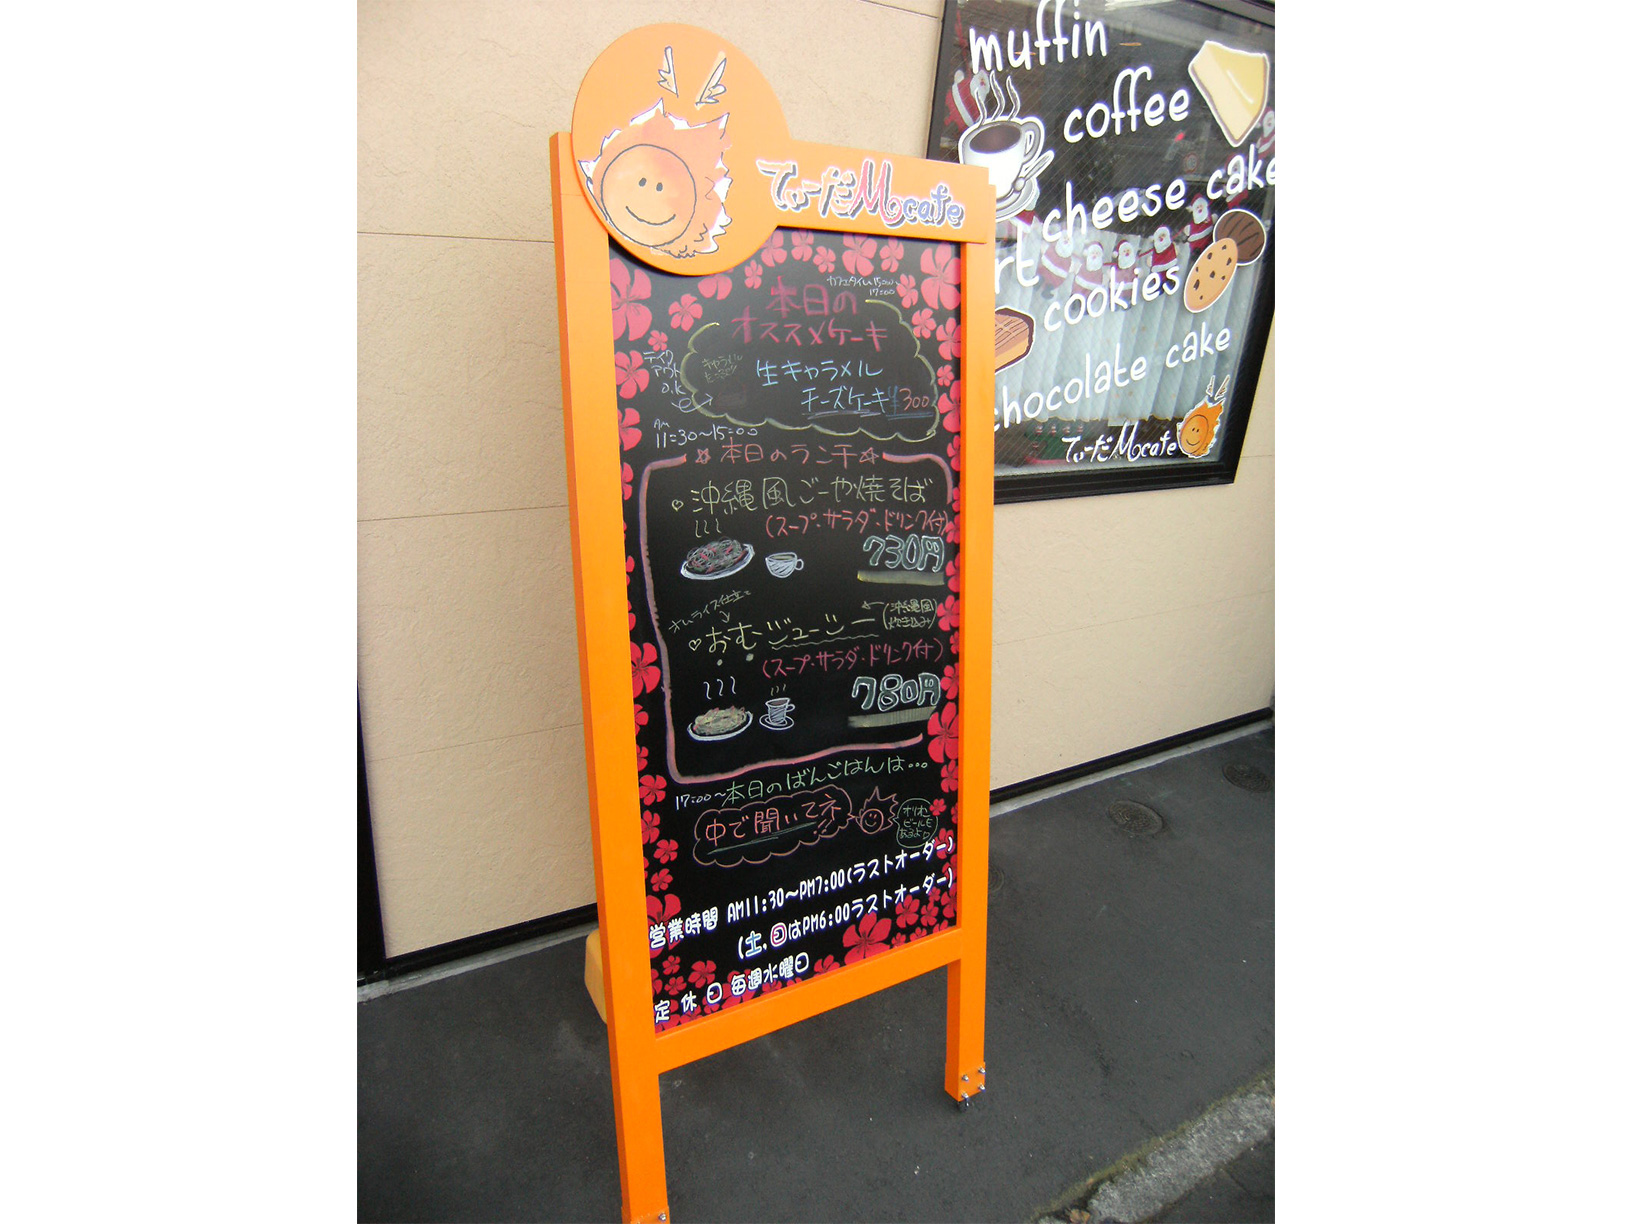 てぃーだMcafe
カフェタイム15:00
17:00
本日の
オススメケーキ
テイク
アウト
o.k
生キャラメル
チーズケーキ ¥300
AM
11:30〜15:00
☆本日のランチ☆
♡沖縄風ごーや焼そば
(スープ・サラダ・ドリンク付)
730円
オムライス仕立て
♡おむジューシー
(沖縄風
炊き込み)
(スープ・サラダ・ドリンク付)
780円
17:00〜本日のばんごはんは…
中で聞いてネ
オリオン
ビールも
あるよ♪
営業時間 AM11:30〜PM7:00(ラストオーダー)
(土,日はPM6:00ラストオーダー)
定休日 毎週水曜日
muffin
coffee
cheese cake
rt
cookies
chocolate cake
てぃーだMcafe